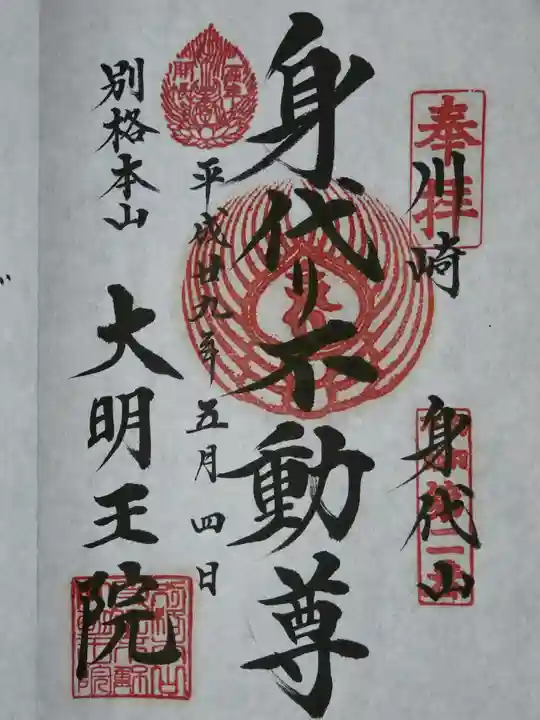 奉拝
川崎
身代山
身代リ不動尊
平成廿九年五月四日
別格本山
大明王院